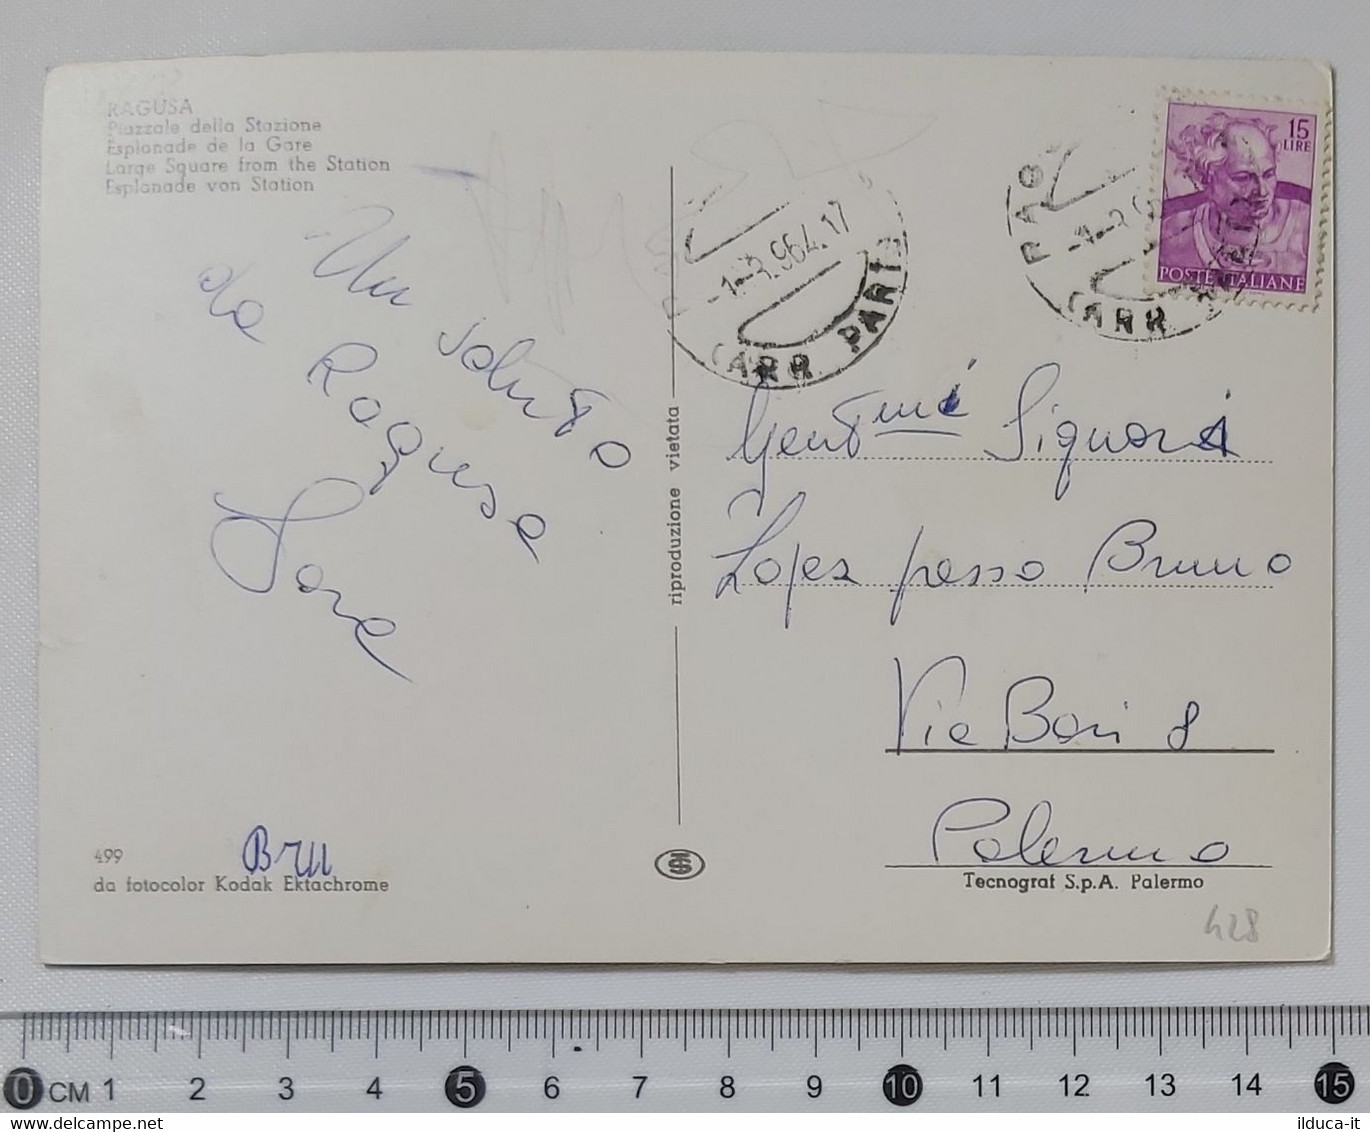 RAGUSA
Piazzale della Stazione
Esplanade de la Gare
Large Square from the Station
Esplanade von Station
Un saluto
da Ragusa
499
da fotocolor Kodak Ektachrome
Bru
riproduzione vietata
-1-2.964.17
ARR PART
15
LIRE
POSTE ITALIANE
RAG
ARR
Gent.mi Signori
Lopez presso Bruno
Via Bari 8
Palermo
Tecnograf S.p.A. Palermo
428
0 CM 1 2 3 4 5 6 7 8 9 10 11 12 13 14 15
ilduca-it